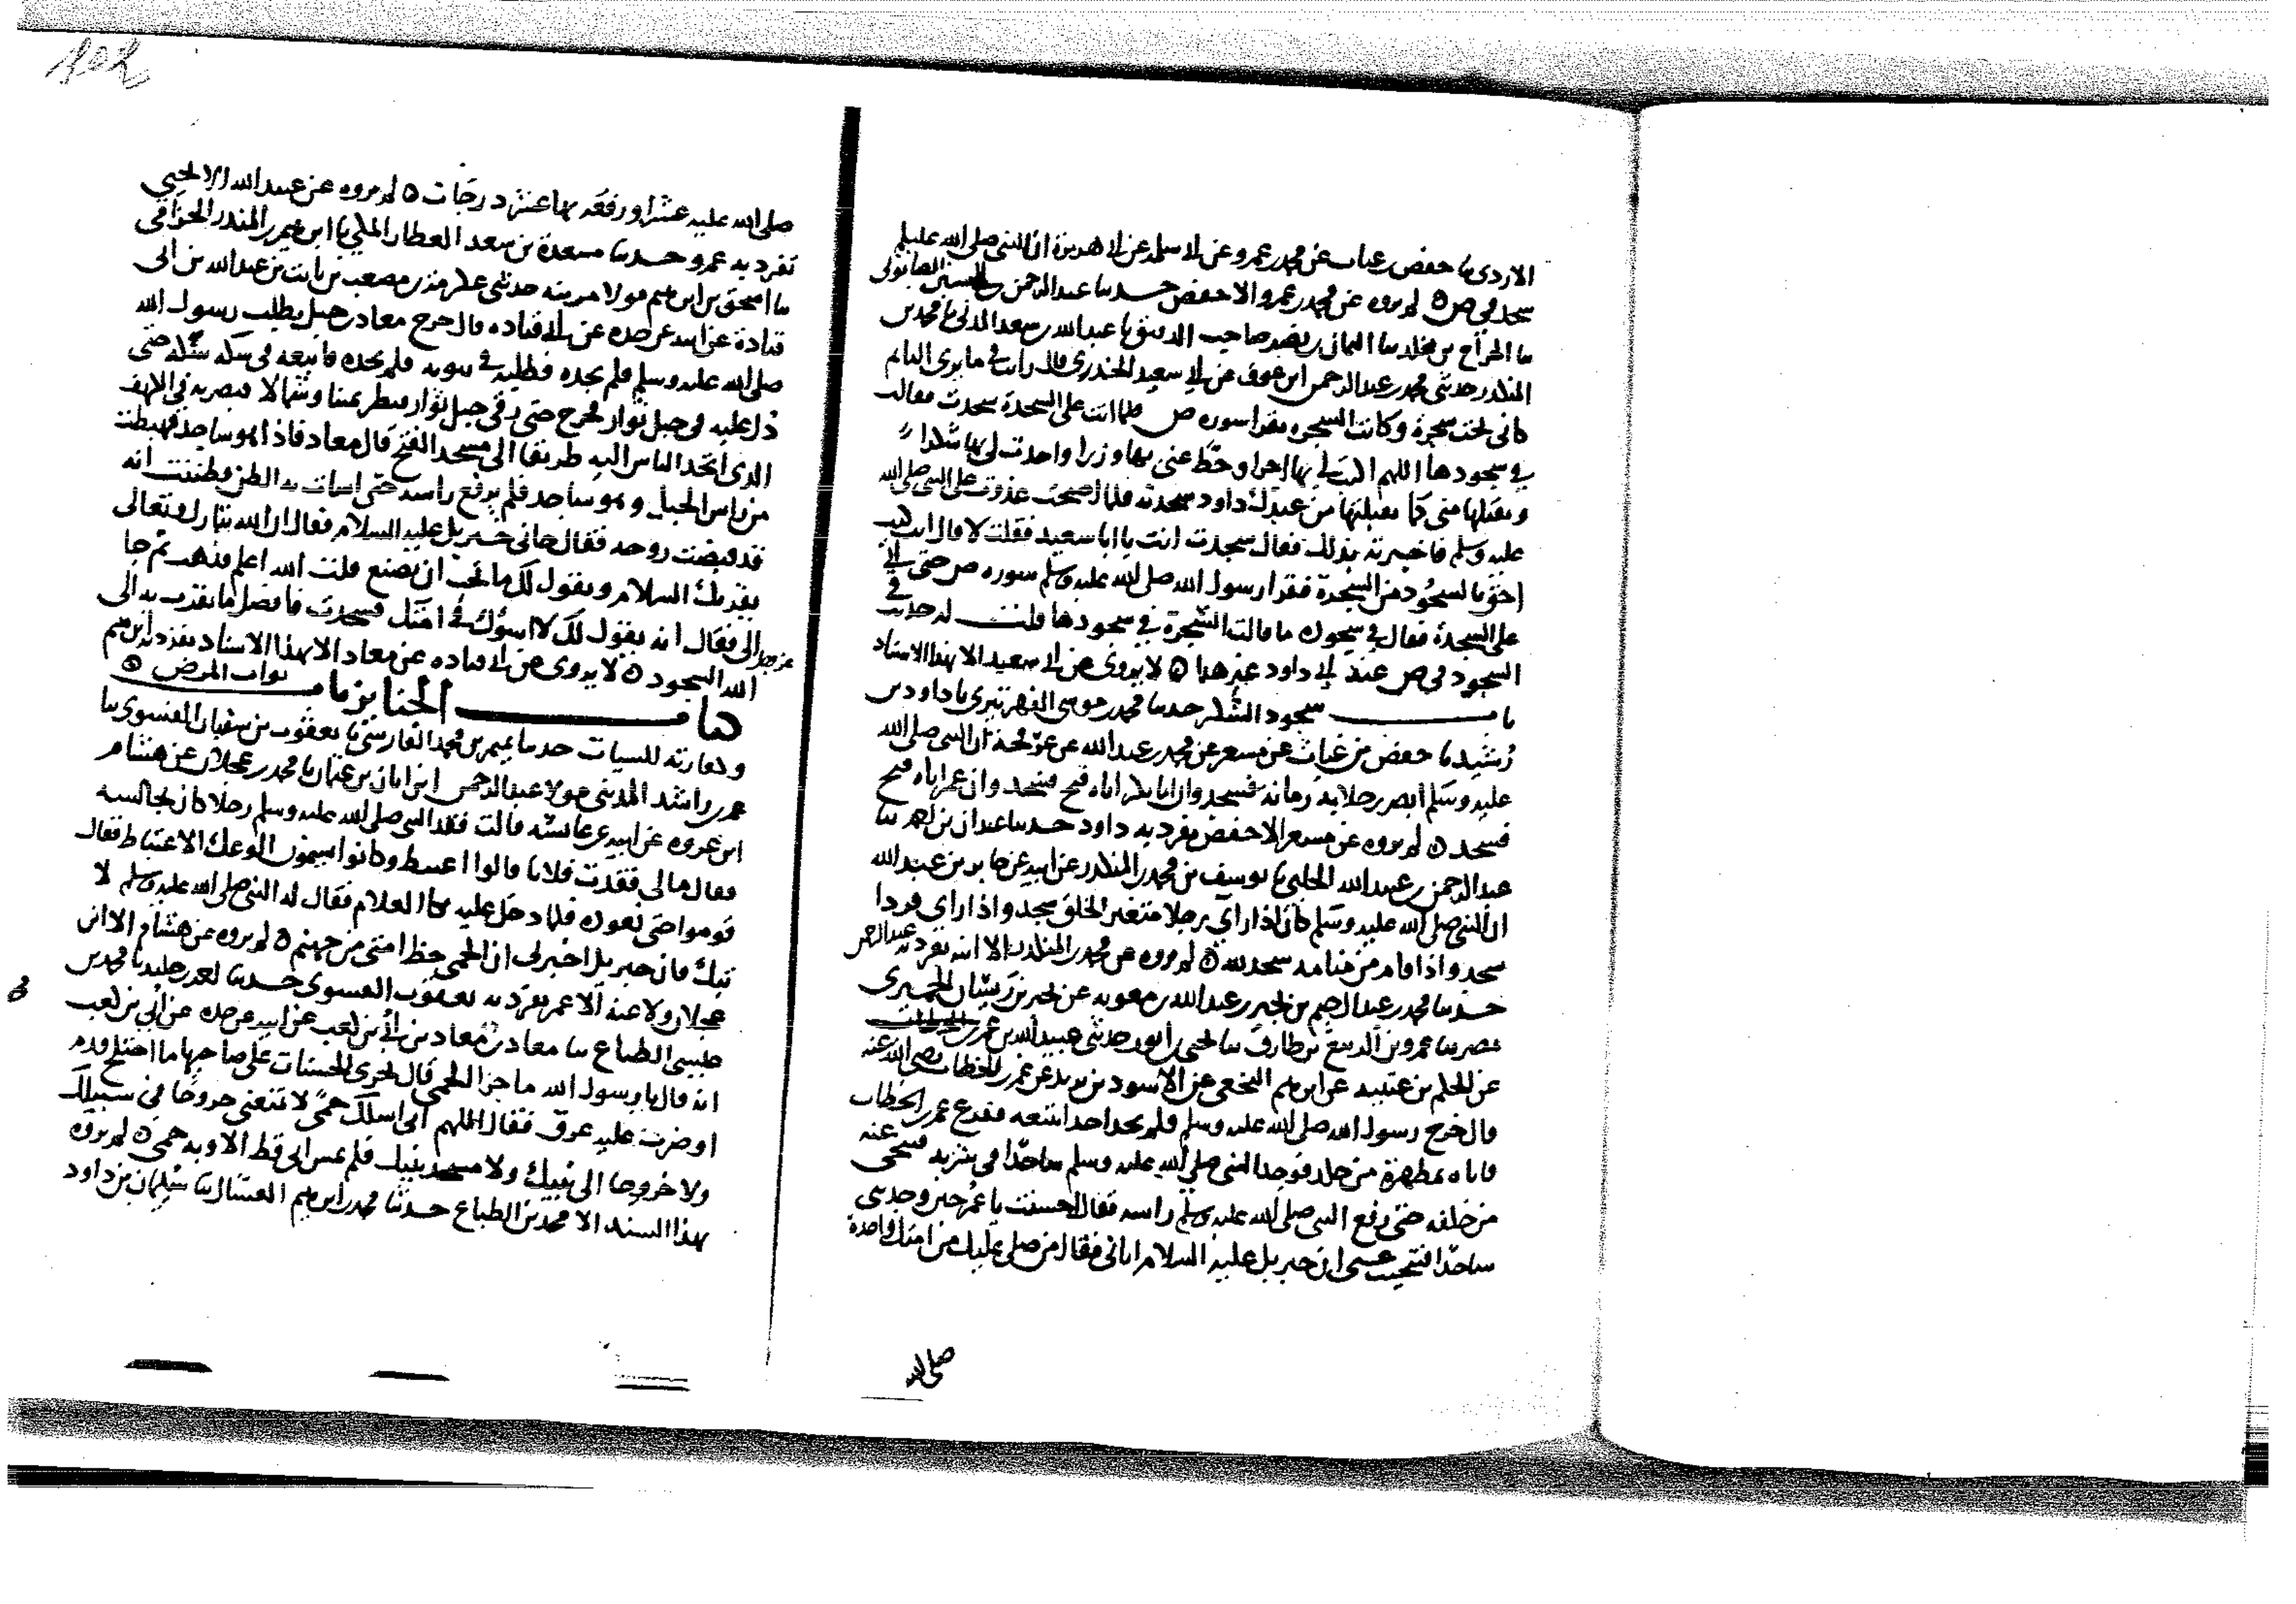 الازدي ثنا حفص بن غياث عن محمد بن عمرو عن ابي سلمة عن ابي هريرة ان النبي صلى الله عليه وسلم
سجد في ص ه لم يروه عن محمد بن عمرو الا حفص حدثنا عبد الرحمن بن الحسين الصابوني
ثنا الجراح بن مخلد ثنا اليمان بن نصر صاحب الدقيق ثنا عبد الله بن سعد المدني ثنا محمد بن
المنكدر حدثني محمد بن عبد الرحمن ابن عوف عن ابي سعيد الخدري قال رايت في ما يرى النائم
كاني تحت شجرة وكانت الشجرة تقرا سورة ص فلما اتت على السجدة سجدت فقالت
في سجودها اللهم اكتب لي بها اجرا وحط عني بها وزرا واحدث لي بها شكرا
وتقبلها مني كما تقبلتها من عبدك داود سجدته فلما اصبحت غدوت على النبي صلى الله
عليه وسلم فاخبرته بذلك فقال سجدت انت يا ابا سعيد فقلت لا قال انت كنت
احق بالسجود من الشجرة فقرا رسول الله صلى الله عليه وسلم سورة ص حتى اتى
على السجدة فقال في سجوده ما قالت الشجرة في سجودها قلت له حديث في
السجود في ص عند ابي داود غير هذا ه لا يروى عن ابي سعيد الا بهذا الاسناد
باب سجود الشكر حدثنا محمد بن موسى النهرتيري ثنا داود بن
رشيد ثنا حفص بن غياث عن مسعر عن محمد بن عبد الله عن عرفجة ان النبي صلى الله
عليه وسلم ابصر رجلا به زمانة فسجد وان ابا بكر اتاه فتح فسجد وان عمر اتاه فتح
فسجد ه لم يروه عن مسعر الا حفص تفرد به داود حدثنا عبدان بن احمد ثنا
عبد الرحمن بن عبيد الله الحلبي ثنا يوسف بن محمد بن المنكدر عن ابيه عن جابر بن عبد الله
ان النبي صلى الله عليه وسلم كان اذا راى رجلا متغير الخلق سجد واذا راى قردا
سجد واذا قام من منامه سجد لله ه لم يروه عن محمد بن المنكدر الا ابنه تفرد به عبد الرحمن
حدثنا محمد بن عبد الرحيم بن بحير بن عبد الله بن معويه عن بحير بن ريسان الحميري
بمصر ثنا عمرو بن الربيع بن طارق ثنا يحيى بن ايوب حدثني عبيد الله بن عمر
عن الحكم بن عتيبه عن ابرهيم النخعي عن الاسود بن يزيد عن عمر بن الخطاب رضي الله عنه
قال خرج رسول الله صلى الله عليه وسلم فلم يجد احدا يتبعه ففزع عمر بن الخطاب
فاتاه بمطهرة من خلفه فوجد النبي صلى الله عليه وسلم ساجدا في مشربه فتنحى عنه
من خلفه حتى رفع النبي صلى الله عليه وسلم راسه فقال احسنت يا عمر حين وجدتني
ساجدا فتنحيت عني ان جبريل عليه السلام اتاني فقال من صلى عليك من امتك واحدة
صلى الله
صلى الله عليه عشرا ورفعه بها عشر درجات ه لم يروه عن عبيد الله الا يحيى
تفرد به عمرو حدثنا مسعدة بن سعد العطار المكي ثنا ابرهيم بن المنذر الحزامي
ثنا اسحق بن ابرهيم مولا مزينه حدثني عكرمة بن مصعب بن ثابت بن عبد الله بن ابي
قتادة عن ابيه عن جده عن ابي قتاده قال خرج معاذ بن جبل يطلب رسول الله
صلى الله عليه وسلم فلم يجده فطلبه في بيوته فلم يجده فاتبعه في سكة سكة حتى
دل عليه في جبل ثواب فخرج حتى رقي جبل ثواب فنظر يمينا وشمالا فبصر به في الكهف
الذي اتخذ الناس اليه طريقا الى مسجد الفتح قال معاذ فاذا هو ساجد فهبطت
من راس الجبل وهو ساجد فلم يرفع راسه حتى اسات به الظن فظننت انه
قد قبضت روحه فقال جاني جبريل عليه السلام فقال ان الله تبارك وتعالى
يقريك السلام ويقول لك ما تحب ان يصنع قلت الله اعلم فذهب ثم جا
الي فقال انه يقول لك لا اسوك في امتك فسجدت فافضل ما يتقرب به الى
الله عز وجل السجود ه لا يروى عن ابي قتاده عن معاذ الا بهذا الاسناد تفرد به ابرهيم
كتاب الجنايز باب ثواب المرض ه
وكفارته للسيات حدثنا ميمر بن محمد الفارسي ثنا يعقوب بن سفيان الفسوي ثنا
عمر بن راشد المديني مولا عبد الرحمن ابن ابان بن عثمان ثنا محمد بن عجلان عن هشام
ابن عروه عن ابيه عن عايشه قالت فقد النبي صلى الله عليه وسلم رجلا كان يجالسه
فقال ما لي فقدت فلانا قالوا اعتبط وكانوا يسمون الوعك الاعتباط فقال
قوموا حتى نعوده فلما دخل عليه بكا الغلام فقال له النبي صلى الله عليه وسلم لا
تبك فان جبريل اخبرني ان الحمى حظ امتي من جهنم ه لم يروه عن هشام الا ابن
عجلان ولا عنه الا عمر تفرد به يعقوب الفسوي حدثنا احمد بن خليد ثنا محمد بن
عيسى الطباع ثنا معاذ بن محمد بن معاذ بن ابي بن كعب عن ابيه عن جده عن ابي بن كعب
انه قال يا رسول الله ما جزا الحمى قال تجري الحسنات على صاحبها ما اختلج قدم
او ضرب عليه عرق فقال اللهم اني اسلك حمى لا تمنعني خروجا في سبيلك
ولا خروجا الى بيتك ولا مسجد نبيك فلم يمس ابي قط الا وبه حمى ه لم يروه
بهذا السند الا محمد بن الطباع حدثنا محمد بن ابرهيم العسال ثنا سليمان بن داود